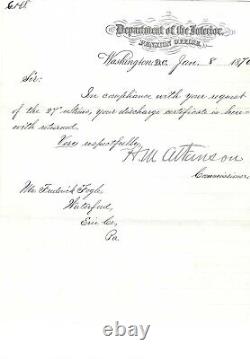 Department of the Interior,
PENSION OFFICE,
Washington D.C. Jan. 8 187
Sir:
In compliance with your request
of the 27" ultimo, your discharge certificate is here
with returned.
Very respectfully,
H M Atkinson
Commissioner
Mr Frederick Fogle
Waterford,
Erie Co,
Pa.